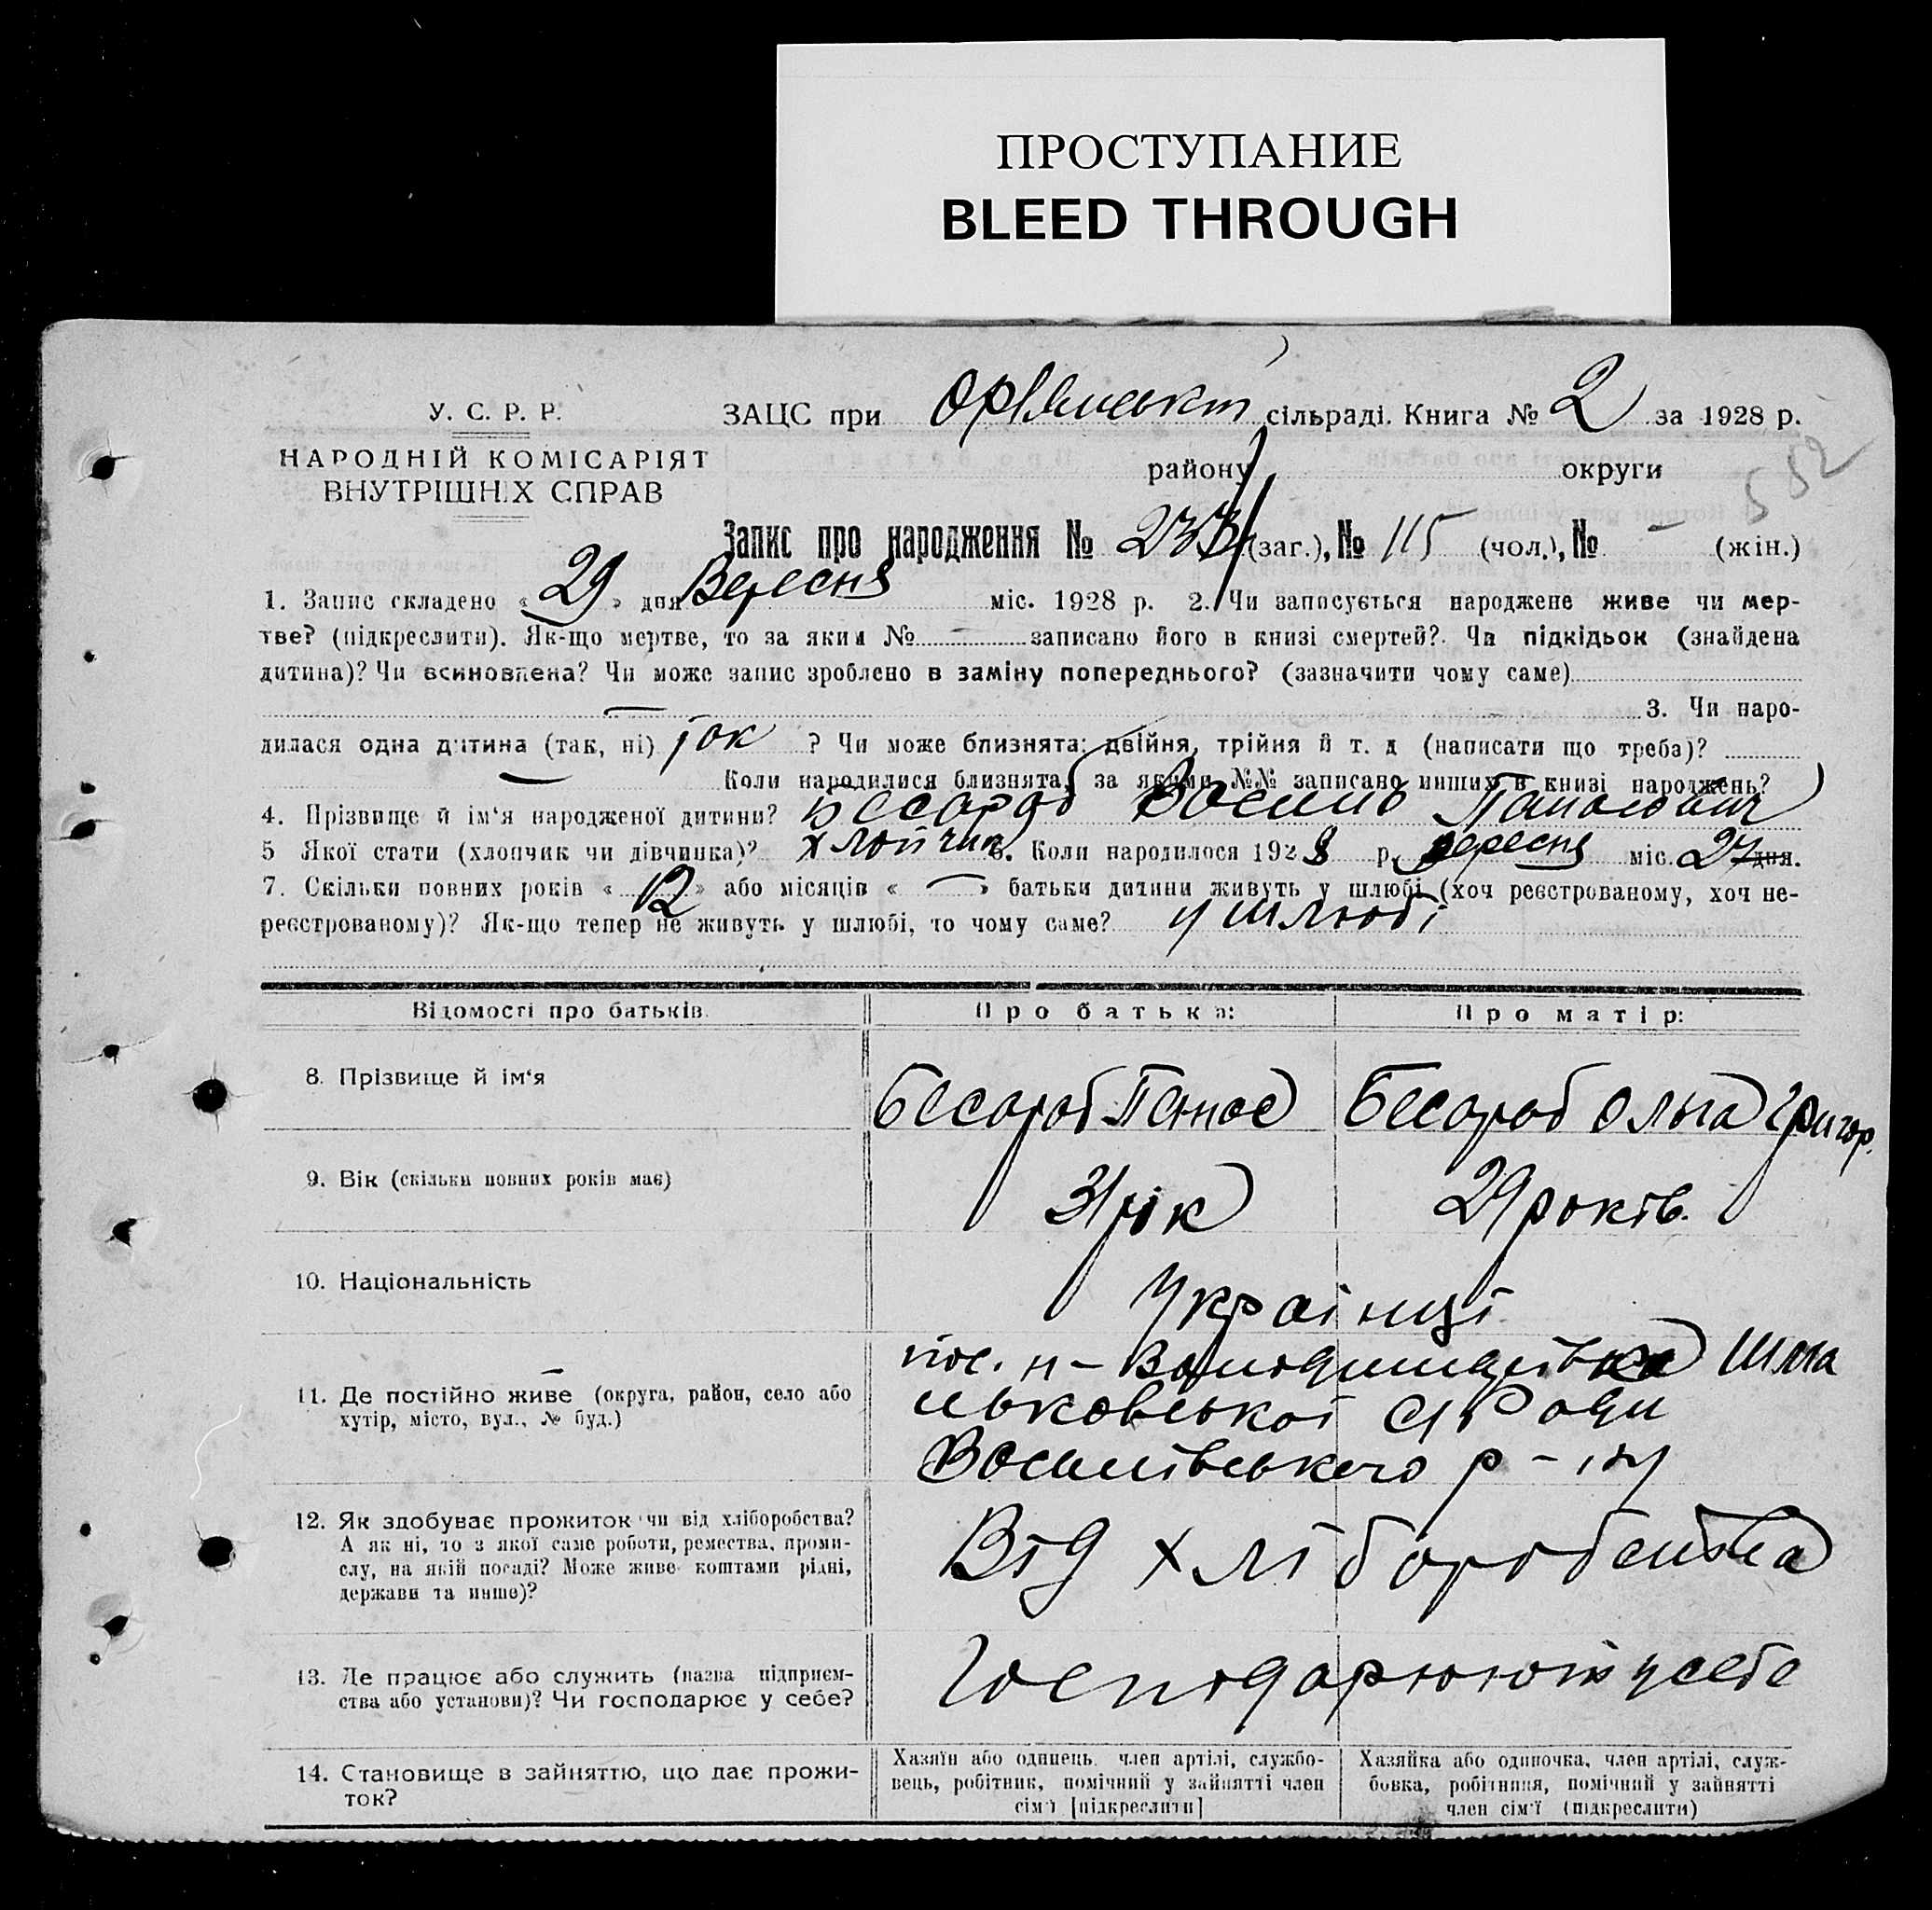 ПРОСТУПАНИЕ
BLEED THROUGH
У. С. Р. Р.
ЗАЦС при сільраді. Книга № 2 за 1928 р.
НАРОДНІЙ КОМІСАРІЯТ
ВНУТРІШНІХ СПРАВ
району округи
552
Запис про народження № 233 (заг.), № 115 (чол.), № – (жін.)
1. Запис складено « 29 » дня Вересня міс. 1928 р. 2. Чи записується народжене живе чи мер-
тве? (підкреслити). Як-що мертве, то за яким № – записано його в книзі смертей? Чи підкідьок (знайдена
дитина)? Чи всиновлена? Чи може запис зроблено в заміну попереднього? (зазначити чому саме)
– 3. Чи наро-
дилася одна дитина (так, ні) так ? Чи може близнята: двійня, трійня й т. д (написати що треба)?
– Коли народилися близнята, за якими №№ записано инших в книзі народжень?
4. Прізвище й ім'я народженої дитини? Бесараб Василь Панасович
5 Якої стати (хлопчик чи дівчинка)? хлопчик 6. Коли народилося 1928 р. вересня міс. 27 дня.
7. Скільки повних років « 12 » або місяців « – » батьки дитини живуть у шлюбі (хоч реєстрованому, хоч не-
реєстрованому)? Як-що тепер не живуть у шлюбі, то чому саме? у шлюбі
Відомості про батьків Про батька: Про матір:
8. Прізвище й ім'я Бесараб Панас Бесараб Ольга Григор.
9. Вік (скільки повних років має) 31 рік 29 років.
10. Національність Українці
11. Де постійно живе (округа, район, село або
хутір, місто, вул., № буд.)
Василівського р-ну
12. Як здобуває прожиток чи від хліборобства?
А як ні, то з якої саме роботи, ремества, проми-
слу, на якій посаді? Може живе коштами рідні,
держави та инше)?
Від хліборобства
13. Де працює або служить (назва підприєм-
ства або установи)? Чи господарює у себе?
Господарюють у себе
14. Становище в зайняттю, що дає прожи-
ток?
Хазяїн або одинець, член артілі, службо-
вець, робітник, помічний у зайнятті член
сім'ї [підкреслити]
Хазяйка або одиночка, член артілі, служ-
бовка, робітниця, помічний у зайнятті
член сім'ї (підкреслити)